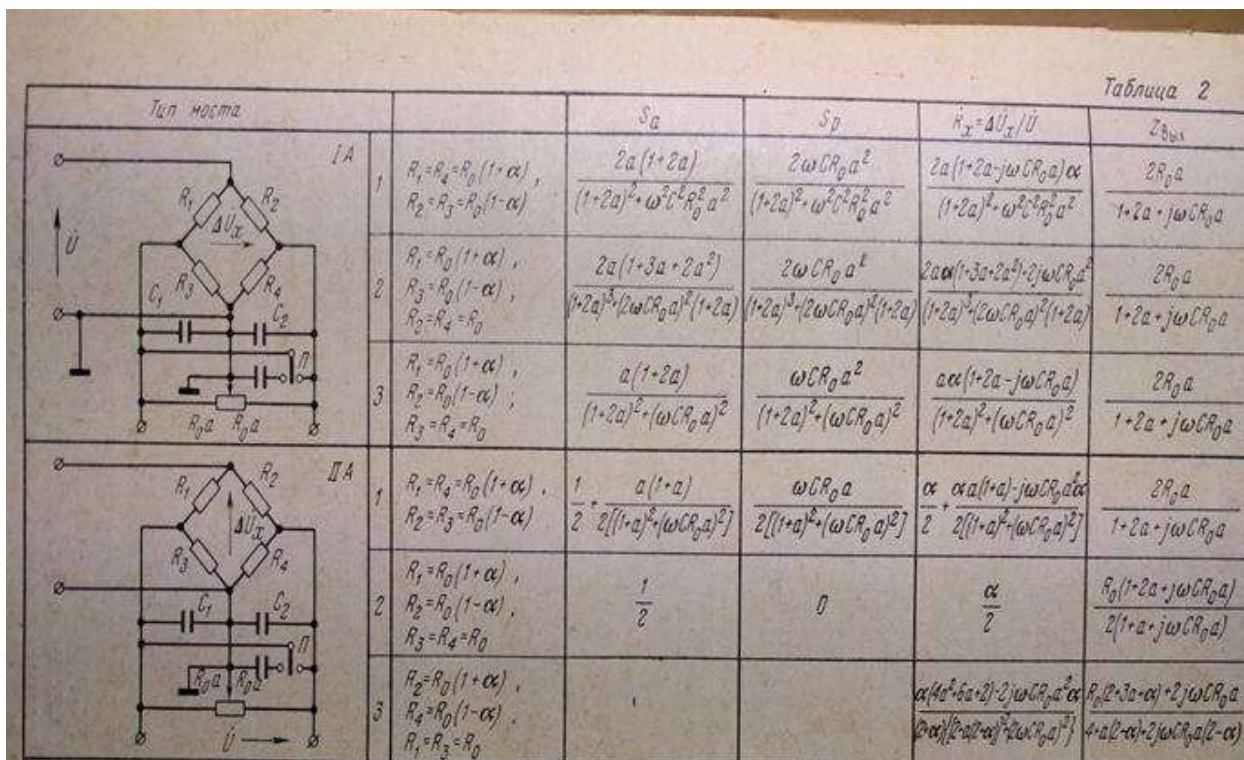 Таблица 2
Тип моста S_a S_p K_x=ΔU̇_x/U̇ Z_вых
IA
R_1 R_2
U̇ ΔU̇_x
R_3 R_4
C_1 C_2
П
R_0a R_0a
1
R_1=R_4=R_0(1+α),
R_2=R_3=R_0(1-α)
2a(1+2a)/((1+2a)²+ω²C²R_0²a²)
2ωCR_0a²/((1+2a)²+ω²C²R_0²a²)
2a(1+2a-jωCR_0a)α/((1+2a)²+ω²C²R_0²a²)
2R_0a/(1+2a+jωCR_0a)
2
R_1=R_0(1+α),
R_3=R_0(1-α),
R_2=R_4=R_0
2a(1+3a+2a²)/((1+2a)³+(2ωCR_0a)²(1+2a))
2ωCR_0a²/((1+2a)³+(2ωCR_0a)²(1+2a))
2aα(1+3a+2a²)+2jωCR_0a²/((1+2a)³+(2ωCR_0a)²(1+2a))
2R_0a/(1+2a+jωCR_0a)
3
R_1=R_0(1+α),
R_2=R_0(1-α);
R_3=R_4=R_0
a(1+2a)/((1+2a)²+(ωCR_0a)²)
ωCR_0a²/((1+2a)²+(ωCR_0a)²)
aα(1+2a-jωCR_0a)/((1+2a)²+(ωCR_0a)²)
2R_0a/(1+2a+jωCR_0a)
IIA
R_1 R_2
ΔU̇_x
R_3 R_4
C_1 C_2
П
R_0a R_0a
U̇
1
R_1=R_4=R_0(1+α),
R_2=R_3=R_0(1-α)
1/2+a(1+a)/(2[(1+a)²+(ωCR_0a)²])
ωCR_0a/(2[(1+a)²+(ωCR_0a)²])
α/2+(αa(1+a)-jωCR_0a²α)/(2[(1+a)²+(ωCR_0a)²])
2R_0a/(1+2a+jωCR_0a)
2
R_1=R_0(1+α),
R_2=R_0(1-α),
R_3=R_4=R_0
1/2
0
α/2
R_0(1+2a+jωCR_0a)/(2(1+a+jωCR_0a))
3
R_2=R_0(1+α),
R_4=R_0(1-α),
R_1=R_3=R_0
α(4a²+6a+2)-2jωCR_0a²α
R_0(2+3a+α)+2jωCR_0a/(4+a(2-α)+2jωCR_0a(2-α))